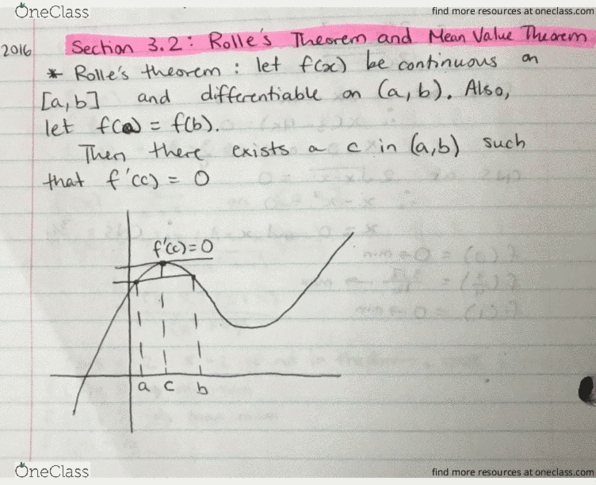 OneClass
find more resources at oneclass.com
2016
Section 3.2: Rolle's Theorem and Mean Value Theorem
* Rolle's theorem : let f(x) be continuous on
[a,b] and differentiable on (a,b). Also,
let f(a) = f(b).
Then there exists a c in (a,b) such
that f'(c) = 0
f'(c)=0
a c b
OneClass
find more resources at oneclass.com